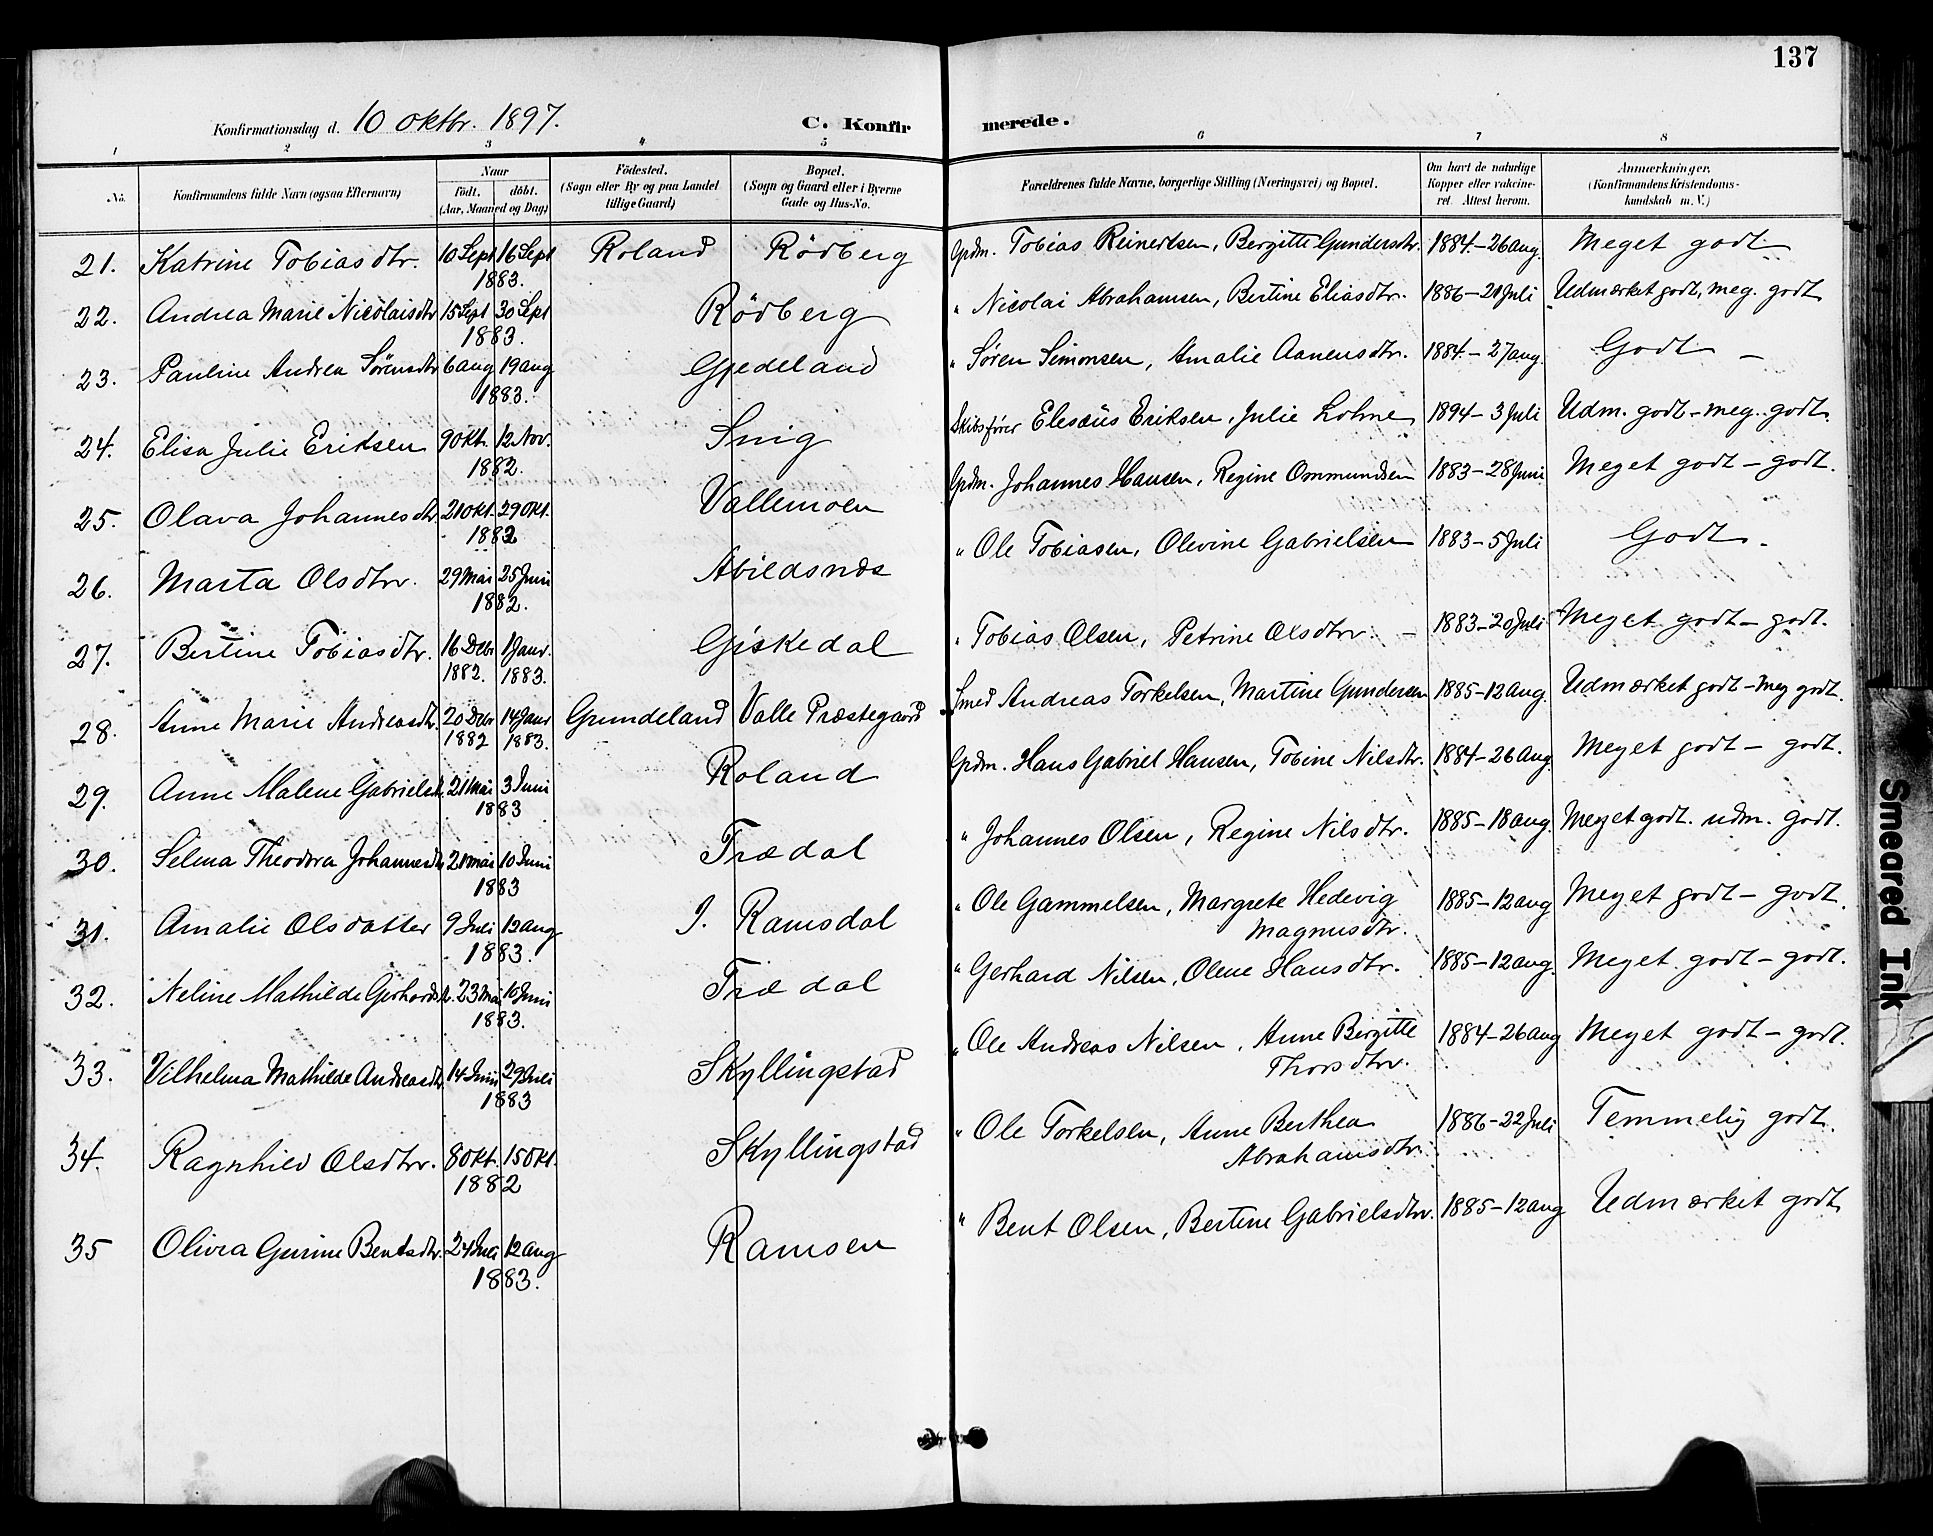 137
Konfirmationsdag d. 10 oktbr. 1897. C. Konfirmerede.
1 2 3 4 5 6 7 8
No. Konfirmandens fulde Navn (ogsaa Efternavn) Naar født. døbt. (Aar, Maaned og Dag) Fødested. (Sogn eller By og paa Landet tillige Gaard) Bopæl. (Sogn og Gaard eller i Byerne Gade og Hus-No. Forældrenes fulde Navne, borgerlige Stilling (Næringsvei) og Bopæl. Om havt de naturlige Kopper eller vakcineret. Attest herom. Anmærkninger. (Konfirmandens Kristendomskundskab m. V.)
21. Katrine Tobiasdtr. 10 Sept 16 Sept 1883. Roland Rödberg Grdm. Tobias Reinertsen, Bergitte Gundersdtr. 1884-26 aug. Meget godt
22. Andrea Marie Nicolaisdtr 15 Sept 30 Sept 1883. Rödberg " Nicolai Abrahamsen, Bertine Eliasdtr. 1886-21 Juli Udmærket godt, meg. godt
23. Pauline Andrea Sörensdtr 6 aug 19 aug 1883. Gjedeland " Søren Simonsen, Amalie Aanensdtr. 1884-27 aug. Godt —
24. Elisa Julie Eriksen 9 Okt. 12 Nov. 1882. Snig Skibsfører Elesæus Eriksen, Julie Lohne 1894-3 Juli Udm. godt-meg. godt.
25. Olava Johannesdtr. 21 Okt. 29 Okt. 1882 Vallemoen Grdm. Johannes Hansen, Regine Ommundsen 1883-28 Juni Meget godt-godt.
26. Marta Olsdtr. 29 Mai 25 Juni 1882. Abildsnæs " Ole Tobiasen, Olevine Gabrielsen 1883-5 Juli Godt.
27. Bertine Tobiasdtr. 16 Debr 1882. 1 Janr. 1883. Giskedal " Tobias Olsen, Petrine Olsdtr. — 1883-20 Juli Meget godt-godt.
28. Anne Marie Andreasdtr. 20 Debr 1882 14 Janr 1883. Grundeland Valle Præstegaard Smed Andreas Torkelsen, Martine Gundersen 1885-12 aug. Udmærket godt-meg godt.
29. Anne Malene Gabrielsdtr. 21 Mai 3 Juni 1883 Roland Grdm. Hans Gabriel Hansen, Tobine Nilsdtr. 1884-26 aug. Meget godt-godt.
30. Selma Theodora Johannesdtr 21 mai 10 Juni 1883 Trædal " Johannes Olsen, Regine Nilsdtr. 1885-18 aug. Meget godt. udm. godt.
31. Amalie Olsdatter 9 Juli 12 aug 1883. I. Ramsdal " Ole Gammelsen, Margrete Hedevig Magnusdtr. 1885-12 aug Meget godt-godt.
32. Neline Mathilde Gerhardsdtr. 23 Mai 10 Juni 1883. Trædal " Gerhard Nilsen, Olene Hansdtr. 1885-12 aug. Meget godt-godt.
33. Vilhelma Mathilde Andreasdtr. 14 Juni 29 Juli 1883 Skyllingstad " Ole Andreas Nilsen, Anne Birgitte Thorsdtr. 1884-26 aug Meget godt-godt.
34. Ragnhild Olsdtr. 8 Okt. 15 Okt. 1882 Skyllingstad " Ole Torkelsen, Anne Berthea Abrahamsdtr. 1886-22 Juli Temmelig godt.
35 Olivia Gurine Bentsdtr. 24 Juli 12 aug 1883. Ramsen " Bent Olsen, Bertine Gabrielsdtr. 1885-12 aug Udmærket godt
Smeared Ink